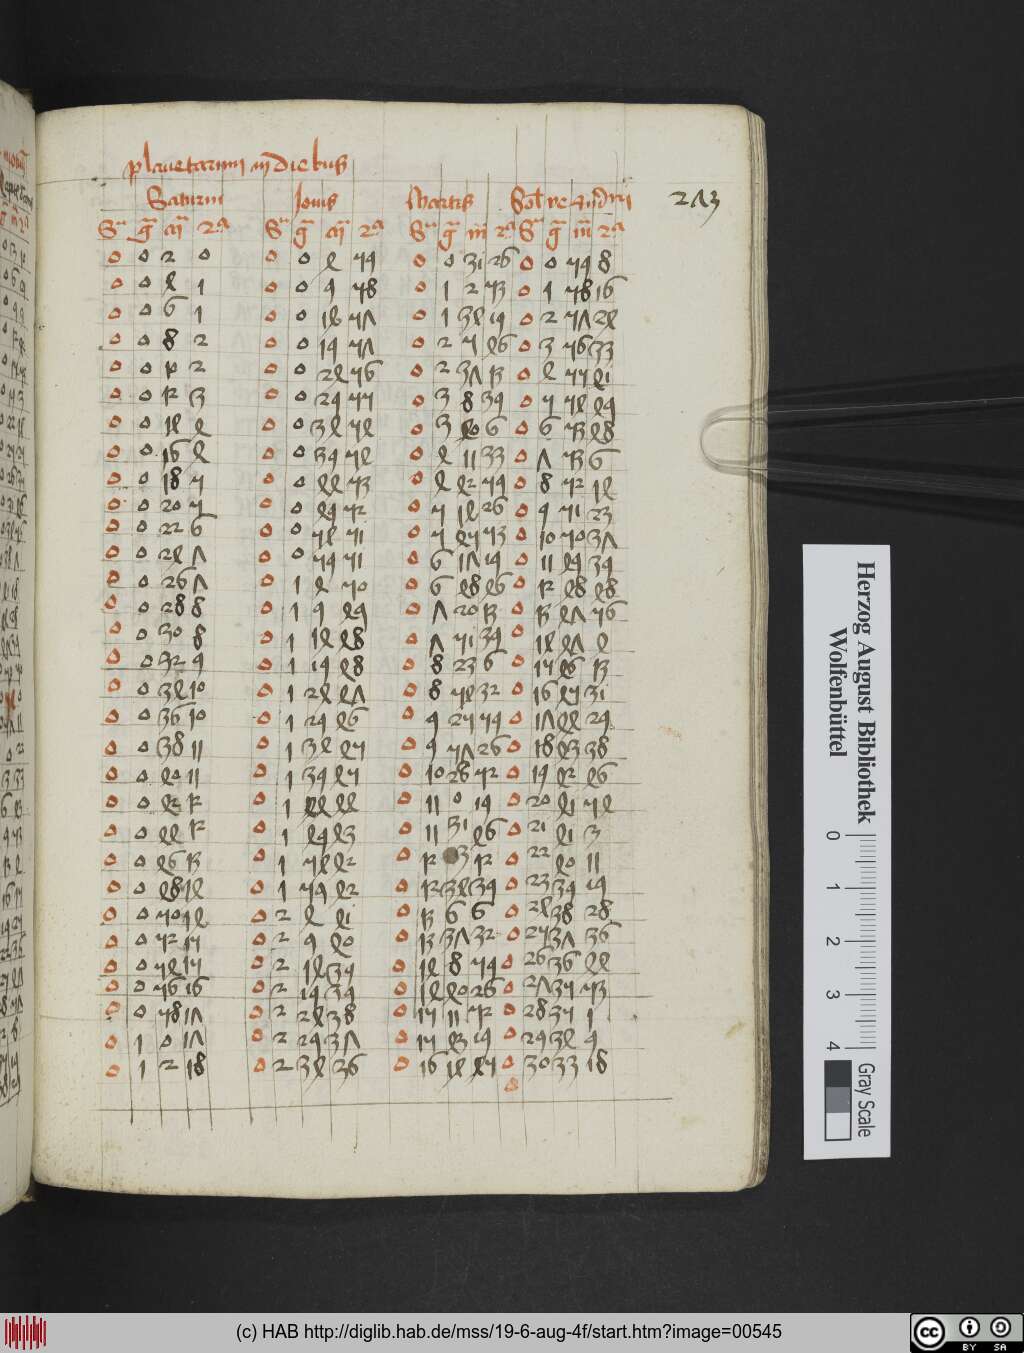 planetarum in diebus
Saturni Iouis Martis Sol ve mercurii 273
S g m 2a S g m 2a S g m 2a S g m 2a
0 0 2 0 0 0 4 59 0 0 31 26 0 0 59 8
0 0 4 1 0 0 9 58 0 1 2 53 0 1 58 16
0 0 6 1 0 0 14 57 0 1 34 19 0 2 57 24
0 0 8 2 0 0 19 57 0 2 5 46 0 3 56 33
0 0 10 2 0 0 24 56 0 2 37 13 0 4 55 41
0 0 12 3 0 0 29 55 0 3 8 39 0 5 54 49
0 0 14 4 0 0 34 54 0 3 40 6 0 6 53 48
0 0 16 4 0 0 39 54 0 4 11 33 0 7 53 6
0 0 18 5 0 0 44 53 0 4 42 59 0 8 52 14
0 0 20 5 0 0 49 52 0 5 14 26 0 9 51 23
0 0 22 6 0 0 54 51 0 5 45 53 0 10 50 37
0 0 24 7 0 0 59 51 0 6 17 19 0 11 49 39
0 0 26 7 0 1 4 50 0 6 48 46 0 12 48 48
0 0 28 8 0 1 9 49 0 7 20 13 0 13 47 56
0 0 30 8 0 1 14 48 0 7 51 39 0 14 47 4
0 0 32 9 0 1 19 48 0 8 23 6 0 15 46 13
0 0 34 10 0 1 24 47 0 8 54 32 0 16 45 31
0 0 36 10 0 1 29 46 0 9 25 59 0 17 44 29
0 0 38 11 0 1 34 45 0 9 57 26 0 18 43 38
0 0 40 11 0 1 39 45 0 10 28 52 0 19 42 46
0 0 42 12 0 1 44 44 0 11 0 19 0 20 41 54
0 0 44 12 0 1 49 43 0 11 31 46 0 21 41 3
0 0 46 13 0 1 54 42 0 12 3 12 0 22 40 11
0 0 48 14 0 1 59 42 0 12 34 39 0 23 39 19
0 0 50 14 0 2 4 41 0 13 6 6 0 24 38 28
0 0 52 15 0 2 9 40 0 13 37 32 0 25 37 36
0 0 54 15 0 2 14 35 0 14 8 59 0 26 36 44
0 0 56 16 0 2 19 39 0 14 40 26 0 27 35 53
0 0 58 17 0 2 24 38 0 15 11 52 0 28 35 1
0 1 0 17 0 2 29 37 0 15 43 19 0 29 34 9
0 1 2 18 0 2 34 36 0 16 14 45 0 30 33 18
Herzog August Bibliothek
Wolfenbüttel
0 1 2 3 4
Gray Scale
(c) HAB http://diglib.hab.de/mss/19-6-aug-4f/start.htm?image=00545
cc BY SA